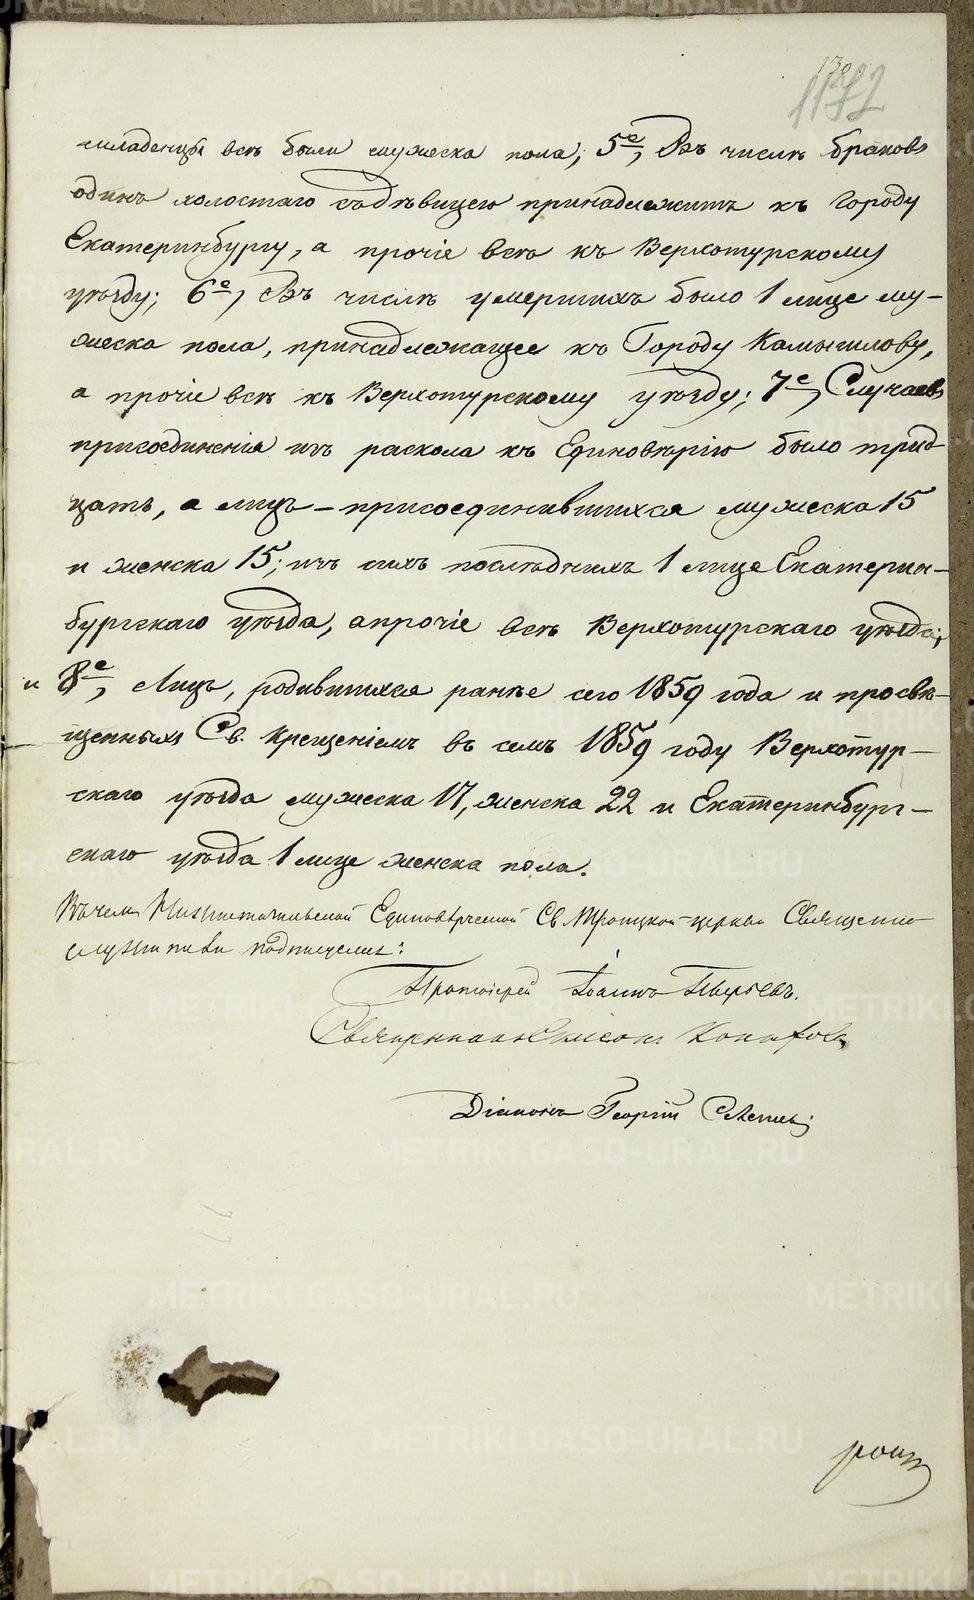 130
1172
младенцы всѣ были мужеска пола; 5е, Въ числѣ браковъ
одинъ холостаго съ дѣвицею принадлежитъ къ Городу
Екатеринбургу, а прочіе всѣ къ Верхотурскому
уѣзду; 6е, Въ числѣ умершихъ было 1 лице му-
жеска пола, принадлежащее къ Городу Камышлову,
а прочіе всѣ къ Верхотурскому уѣзду; 7е, Случаевъ
присоединенія изъ раскола къ Единовѣрію было трид
цать, а лицъ - присоединившихся мужеска 15
и женска 15; изъ сихъ послѣднихъ 1 лице Екатерин-
бургскаго уѣзда, а прочіе всѣ Верхотурскаго уѣзда;
и 8е, Лицъ, родившихся ранѣе сего 1859 года и просвѣ-
щенныхъ Св. Крещеніемъ въ семъ 1859 году Верхотур-
скаго уѣзда мужеска 17, женска 22 и Екатеринбург-
скаго уѣзда 1 лице женска пола.
Въ чемъ Нижнетагильской Единовѣрческой Св Троицкой церкви Священно
служители подписуемся:
Протоіерей Іоаннъ Пырьевъ.
Священникъ Симеонъ
Діаконъ Георгій
METRIKI.GASO-URAL.RU